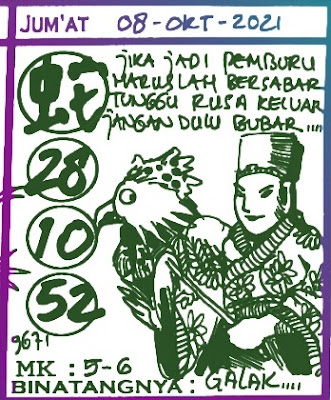 JUM'AT 08-OKT-2021
JIKA JADI PEMBURU
HARUSLAH BERSABAR
TUNGGU RUSA KELUAR
JANGAN DULU BUBAR....
蛇
28
10
52
9671
MK : 5-6
BINATANGNYA : GALAK....